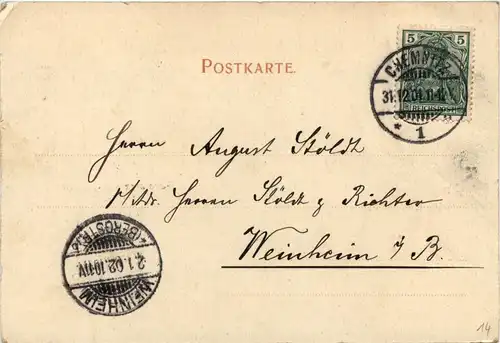 5 5
REICHSPOST
POSTKARTE.
CHEMNITZ
31.12.01.11-12V.
* 1
Herrn August Stöldt
p/Adr. Herren Stöldt & Richter
Weinheim i/B.
* (BERGSTR.) *
2.1.02.10-11V
WEINHEIM
14